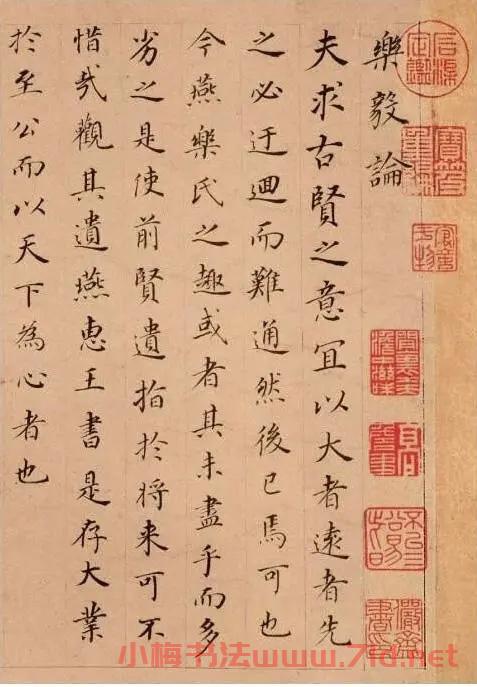 樂毅論
夫求古賢之意宜以大者遠者先
之必迂迴而難通然後已焉可也
今燕樂氏之趣或者其未盡乎而多
劣之是使前賢遺指於將来可不
惜哉觀其遺燕惠王書是存大業
於至公而以天下為心者也
小梅书法www.71d.net